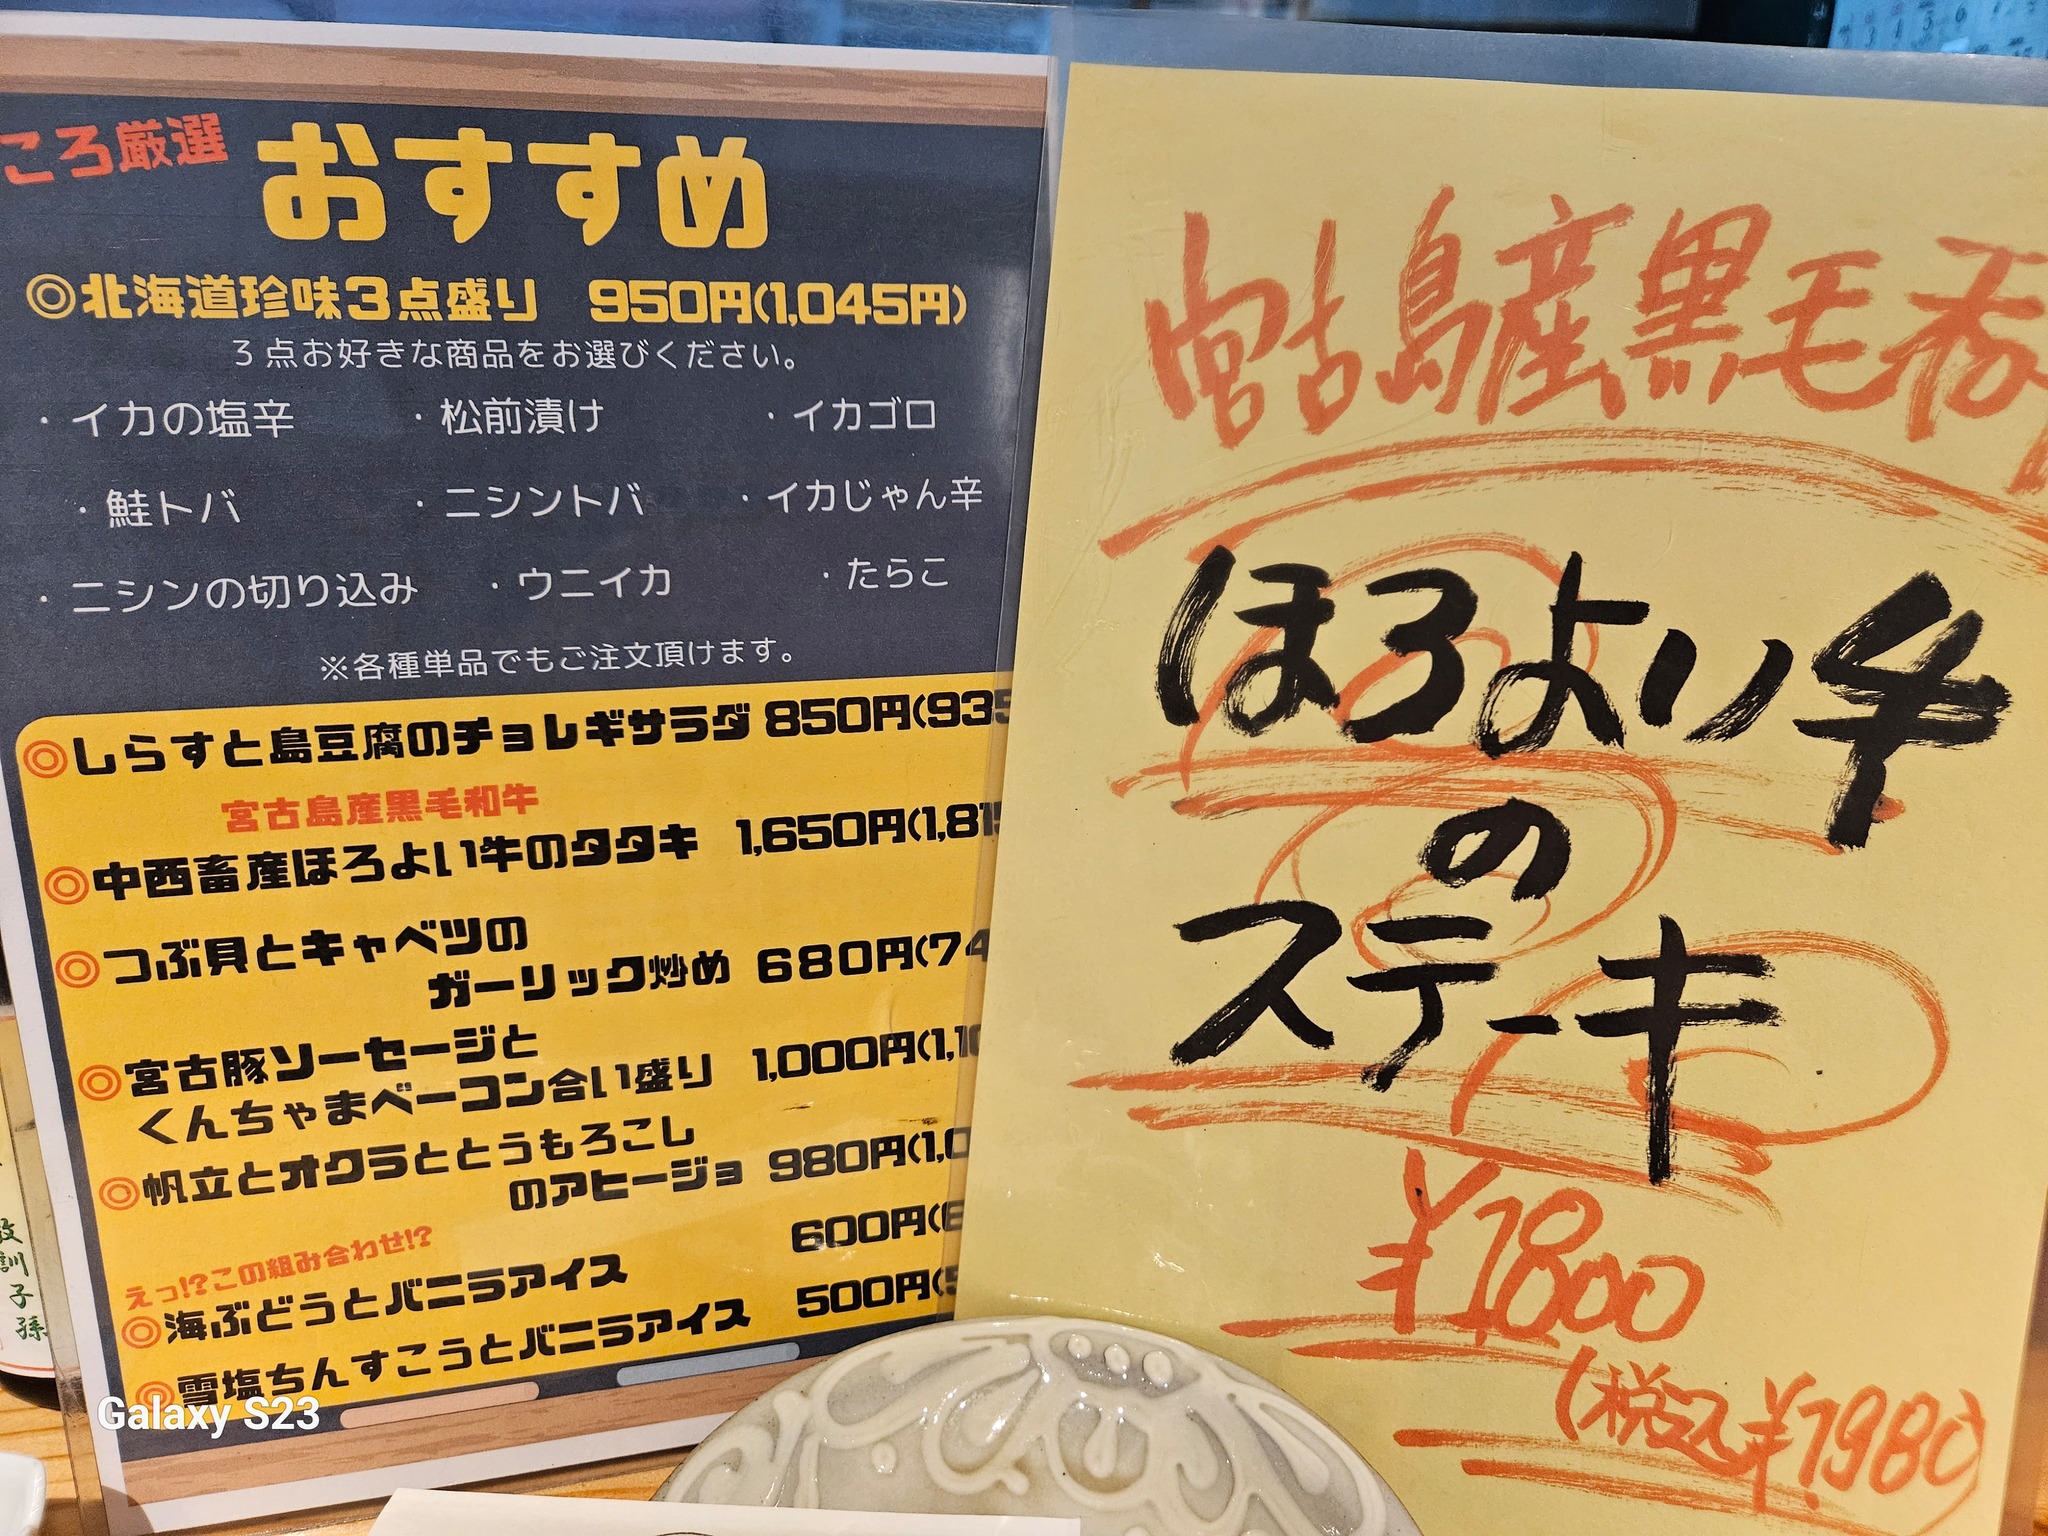 ころ厳選
おすすめ
◎北海道珍味3点盛り 950円(1,045円)
3点お好きな商品をお選びください。
・イカの塩辛 ・松前漬け ・イカゴロ
・鮭トバ ・ニシントバ ・イカじゃん辛
・ニシンの切り込み ・ウニイカ ・たらこ
※各種単品でもご注文頂けます。
◎しらすと島豆腐のチョレギサラダ 850円(935
宮古島産黒毛和牛
◎中西畜産ほろよい牛のタタキ 1,650円(1,815
◎つぶ貝とキャベツの
ガーリック炒め 680円(74
◎宮古豚ソーセージと
くんちゃまベーコン合い盛り 1,000円(1,10
◎帆立とオクラととうもろこし
のアヒージョ 980円(1,0
えっ!?この組み合わせ!?
◎海ぶどうとバニラアイス 600円(6
◎雪塩ちんすこうとバニラアイス 500円(5
宮古島産黒毛和
ほろよい牛
の
ステーキ
¥1800
(税込¥1,980)
子孫
Galaxy S23